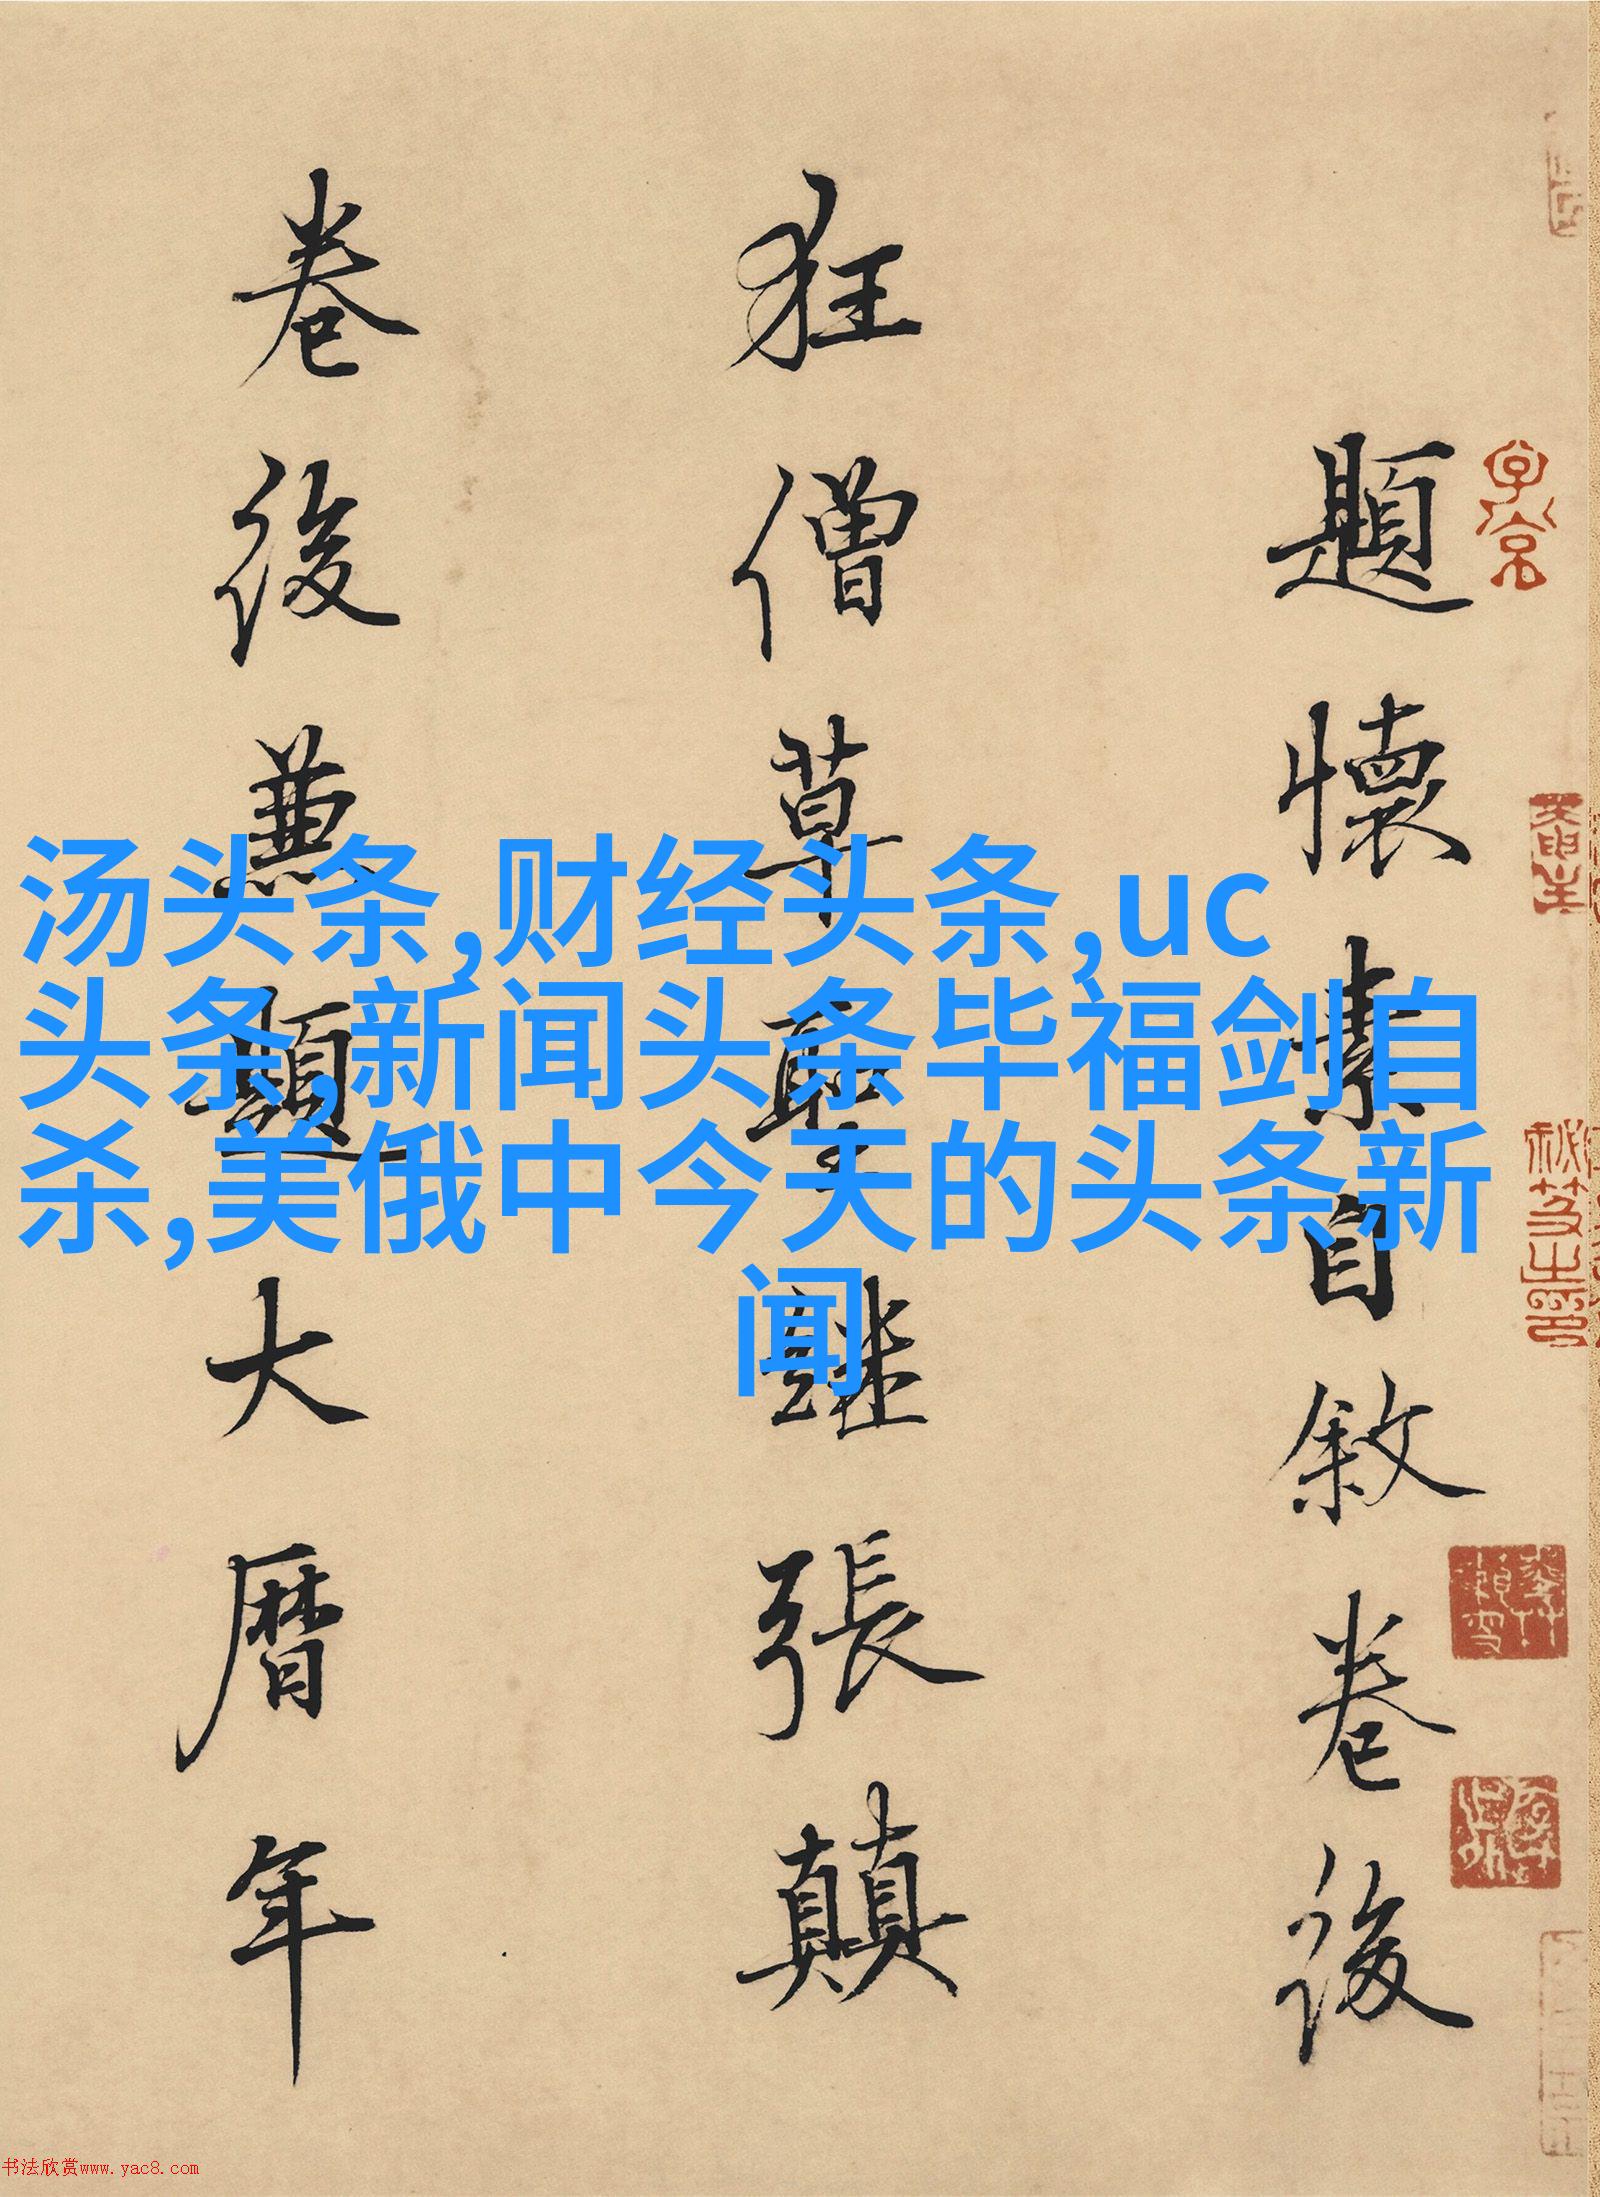 題懷素自敘卷後
狂僧草聖继張顛
卷後兼題大曆年
汤头条,财经头条,uc
头条,新闻头条毕福剑自
杀,美俄中今天的头条新
闻
书法欣赏www.yac8.com